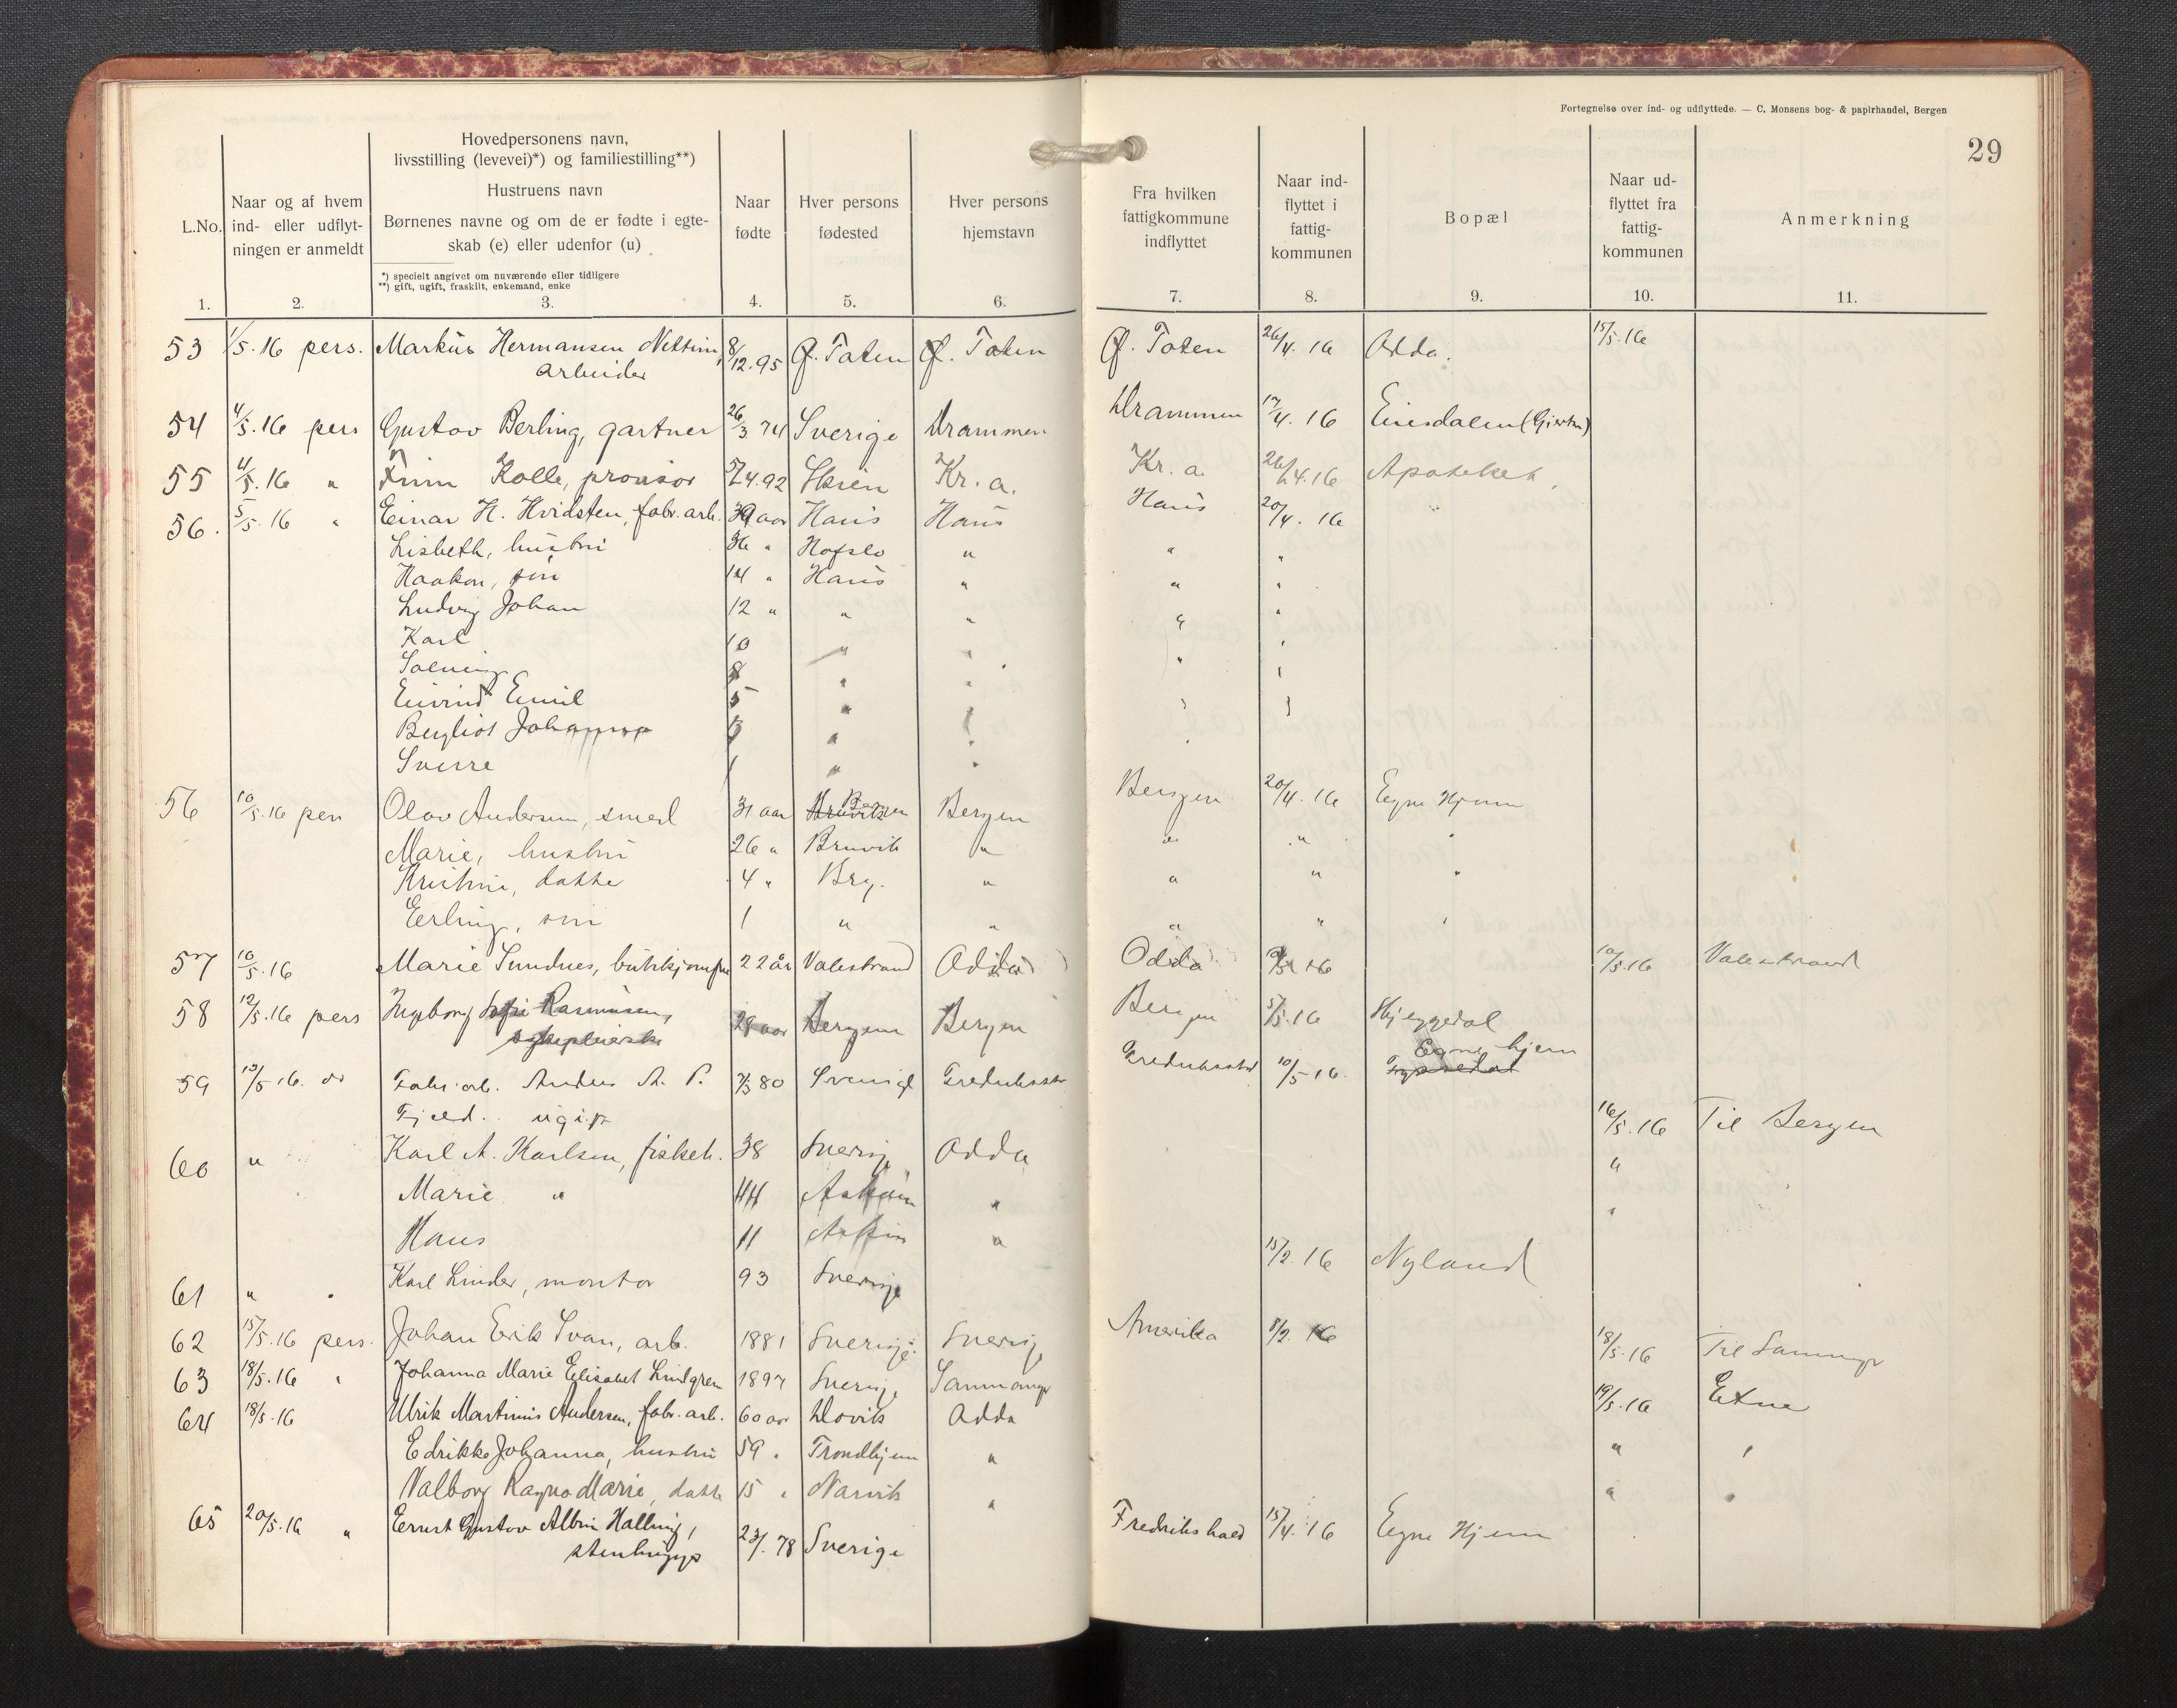 Fortegnelse over ind- og udflyttede. — C. Monsens bog- & papirhandel, Bergen
29
L.No.
Naar og af hvem
ind- eller udflyt-
ningen er anmeldt
Hovedpersonens navn,
livsstilling (levevei)*) og familiestilling**)
Hustruens navn
Børnenes navne og om de er fødte i egte-
skab (e) eller udenfor (u)
*) specielt angivet om nuværende eller tidligere
**) gift, ugift, fraskilt, enkemand, enke
Naar
fødte
Hver persons
fødested
Hver persons
hjemstavn
Fra hvilken
fattigkommune
indflyttet
Naar ind-
flyttet i
fattig-
kommunen
Bopæl
Naar ud-
flyttet fra
fattig-
kommunen
Anmerkning
1. 2. 3. 4. 5. 6. 7. 8. 9. 10. 11.
53 1/5.16 pers. Markus Hermansen 8/12.95 Ø. Toten Ø. Toten Ø. Toten 26/4.16 Odda. 15/5.16
arbeider
54 4/5.16 pers Gustav Berling, gartner 26/3 74 Sverige Drammen Drammen 4.16
55 4/5.16 " Finn Kolle, provisor 4.92 Skien Kr.a. Kr.a. 26/4.16 Apoteket
56. 5/5.16 " Einar H. Hvidsten, fabr.arb. 39 aar Haus Haus Haus 20/4.16
Lisbeth, hustru 36 " Hofslo " " "
Haakon, søn 14 " Haus " " "
Ludvig Johan 12 " " " " "
Karl 10 " " " "
Solveig 8 " "
Eivind Emil 5 " "
Bergliot Johanna 3 " "
Sverre 1 " "
56 10/5.16 pers Olav Andersen, smed 31 aar Bruvik Bergen Bergen Bergen 20/4.16 Egne Hjem
Marie, hustru 26 " Bruvik " " " "
Kristine, datter 4 " Brg. " " " "
Erling, søn 1 " " " " "
57 10/5.16 Marie Sundnes, butikjomfru 22 år Valestrand Odda Odda 16 10/5.16 Valestrand
58 12/5.16 pers Ingborg Sofie Rasmussen, 29 aar Bergen Bergen Bergen 5/5.16 Skjeggedal
sykepleierske
59 13/5 16. Fabr.arb. Anders A. P. 80 Sverige Fredriksstad Fredriksstad 10/5 16. Tyssedal Egne hjem
Fjeld. ugift
60 " Karl A. Karlsen, fiskeh. 38 Sverige Odda 16/5.16 Til Bergen
Marie " 44 Askim " "
Hans 11 Askim " "
61 " Karl Linder, montør 93 Sverige 15/2.16 Nyland
62 15/5.16 pers. Johan Erik Ivan, arb. 1881 Sverige Sverige Amerika 8/2.16
63 18/5.16 " Johanna Marie Elisabet Lindgren 1897 Sverige Samnanger 18/5.16 Til Samnanger
64 18/5.16 Ulrik Martinus Andersen, fabr.arb. 60 aar Odda 19/5.16 Etne
Edrikke Johanna, hustru 59 " Trondhjem " " "
Valborg Ragna Marie, datter 15 " Narvik " " "
65 20/5.16 " Ernst Gustav Albin Halling, 78 Sverige Fredrikshald 15/4.16 Egne Hjem
stenhugger